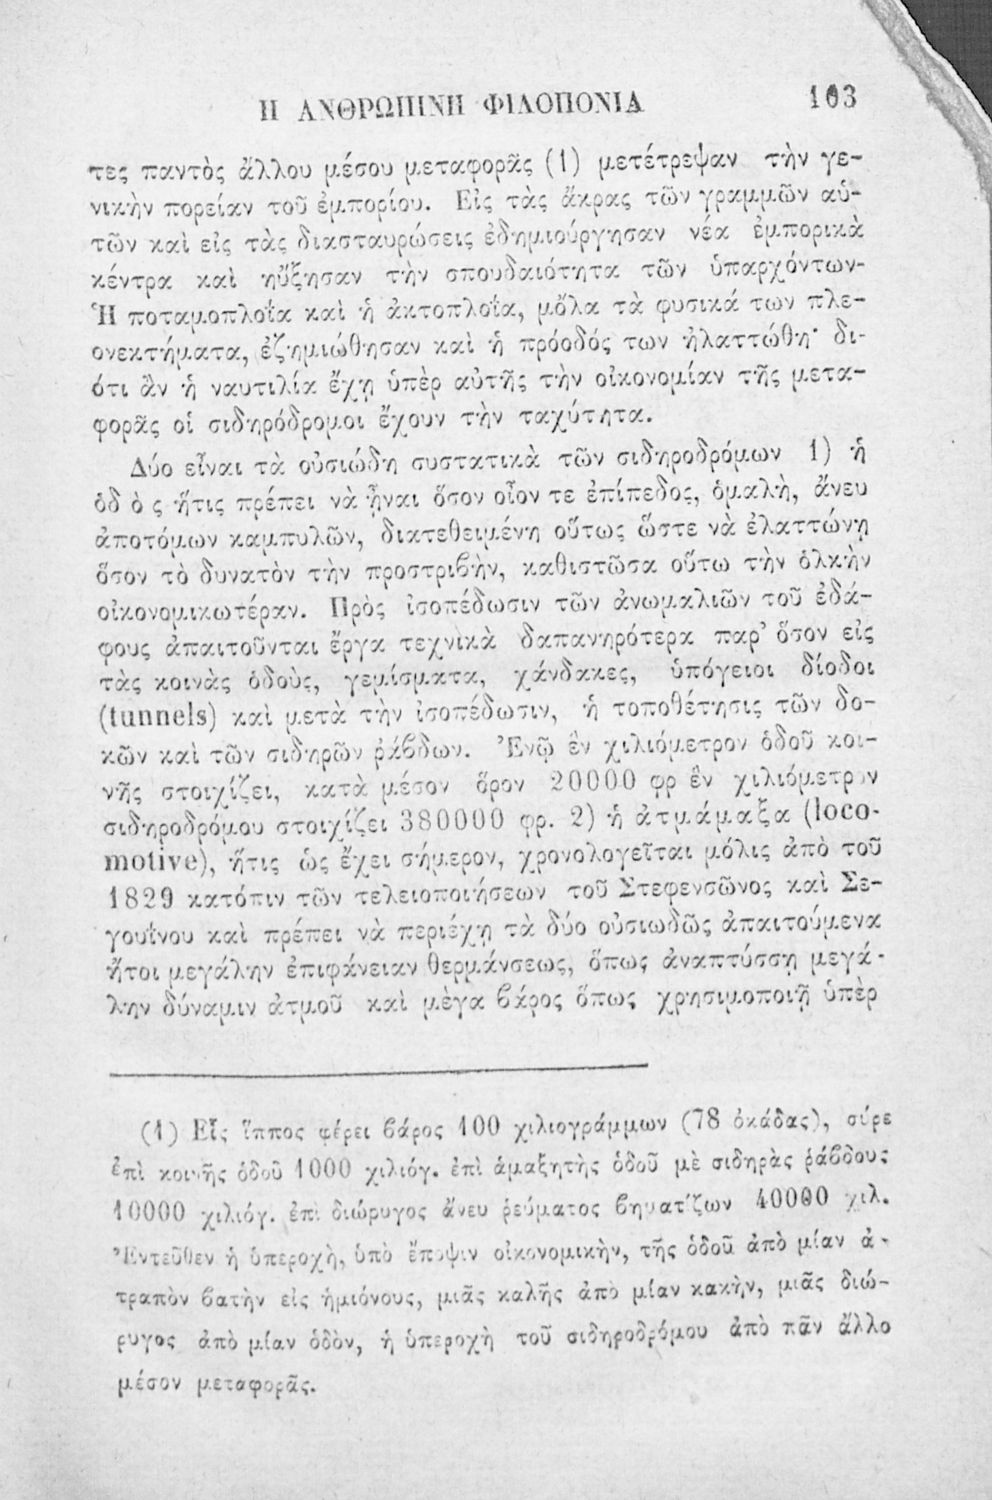 Η ΑΝΘΡΩΠΙΝΗ ΦΙΛΟΠΟΝΙΑ 103
τες παντὸς ἄλλου μέσου μεταφορᾶς (1) μετέτρεψαν τὴν γε-
νικὴν πορείαν τοῦ ἐμπορίου. Εἰς τὰς ἄκρας τῶν γραμμῶν αὐ-
τῶν καὶ εἰς τὰς διασταυρώσεις ἐδημιούργησαν νέα ἐμπορικὰ
κέντρα καὶ ηὔξησαν τὴν σπουδαιότητα τῶν ὑπαρχόντων-
Ἡ ποταμοπλοΐα καὶ ἡ ἀκτοπλοΐα, μὅλα τὰ φυσικά των πλε-
ονεκτήματα, ἐζημιώθησαν καὶ ἡ πρόοδός των ἠλαττώθη· δι-
ότι ἂν ἡ ναυτιλία ἔχῃ ὑπὲρ αὐτῆς τὴν οἰκονομίαν τῆς μετα-
φορᾶς οἱ σιδηρόδρομοι ἔχουν τὴν ταχύτητα.
Δύο εἶναι τὰ οὐσιώδη συστατικὰ τῶν σιδηροδρόμων 1) ἡ
ὁδ ὸ ς ἥτις πρέπει νὰ ἦναι ὅσον οἷον τε ἐπίπεδος, ὁμαλὴ, ἄνευ
ἀποτόμων καμπυλῶν, διατεθειμένη οὕτως ὥστε νὰ ἐλαττώνῃ
ὅσον τὸ δυνατὸν τὴν προστριβὴν, καθιστῶσα οὕτω τὴν ὁλκὴν
οἰκονομικωτέραν. Πρὸς ἰσοπέδωσιν τῶν ἀνωμαλιῶν τοῦ ἐδά-
φους ἀπαιτοῦνται ἔργα τεχνικὰ δαπανηρότερα παρ’ ὅσον εἰς
τὰς κοινὰς ὁδοὺς, γεμίσματα, χάνδακες, ὑπόγειοι δίοδοι
(tunnels) καὶ μετὰ τὴν ἰσοπέδωσιν, ἡ τοποθέτησις τῶν δο-
κῶν καὶ τῶν σιδηρῶν ῥάβδων. Ἐνῷ ἓν χιλιόμετρον ὁδοῦ κοι-
νῆς στοιχίζει, κατὰ μέσον ὅρον 20000 φρ ἓν χιλιόμετρον
σιδηροδρόμου στοιχίζει 380000 φρ. 2) ἡ ἀτμάμαξα (loco-
motive), ἥτις ὡς ἔχει σήμερον, χρονολογεῖται μόλις ἀπὸ τοῦ
1829 κατόπιν τῶν τελειοποιήσεων τοῦ Στεφενσῶνος καὶ Σε-
γουΐνου καὶ πρέπει νὰ περιέχῃ τὰ δύο οὐσιωδῶς ἀπαιτούμενα
ἤτοι μεγάλην ἐπιφάνειαν θερμάνσεως, ὅπως ἀναπτύσσῃ μεγά-
λην δύναμιν ἀτμοῦ καὶ μὲγα βάρος ὅπως χρησιμοποιῇ ὑπὲρ
(1) Εἷς ἵππος φέρει βάρος 100 χιλιογράμμων (78 ὀκάδας), σύρε
ἐπὶ κοινῆς ὁδοῦ 1000 χιλιόγ. ἐπὶ ἁμαξητῆς ὁδοῦ μὲ σιδηρὰς ῥάβδους
10000 χιλιόγ. ἐπὶ διώρυγος ἄνευ ῥεύματος βηματίζων 40000 χιλ.
Ἐντεῦθεν ἡ ὑπεροχὴ, ὑπὸ ἔποψιν οἰκονομικὴν, τῆς ὁδοῦ ἀπὸ μίαν ἀ-
τραπὸν βατὴν εἰς ἡμιόνους, μιᾶς καλῆς ἀπὸ μίαν κακὴν, μιᾶς διώ-
ρυγος ἀπὸ μίαν ὁδὸν, ἡ ὑπεροχὴ τοῦ σιδηροδρόμου ἀπὸ πᾶν ἄλλο
μέσον μεταφορᾶς.